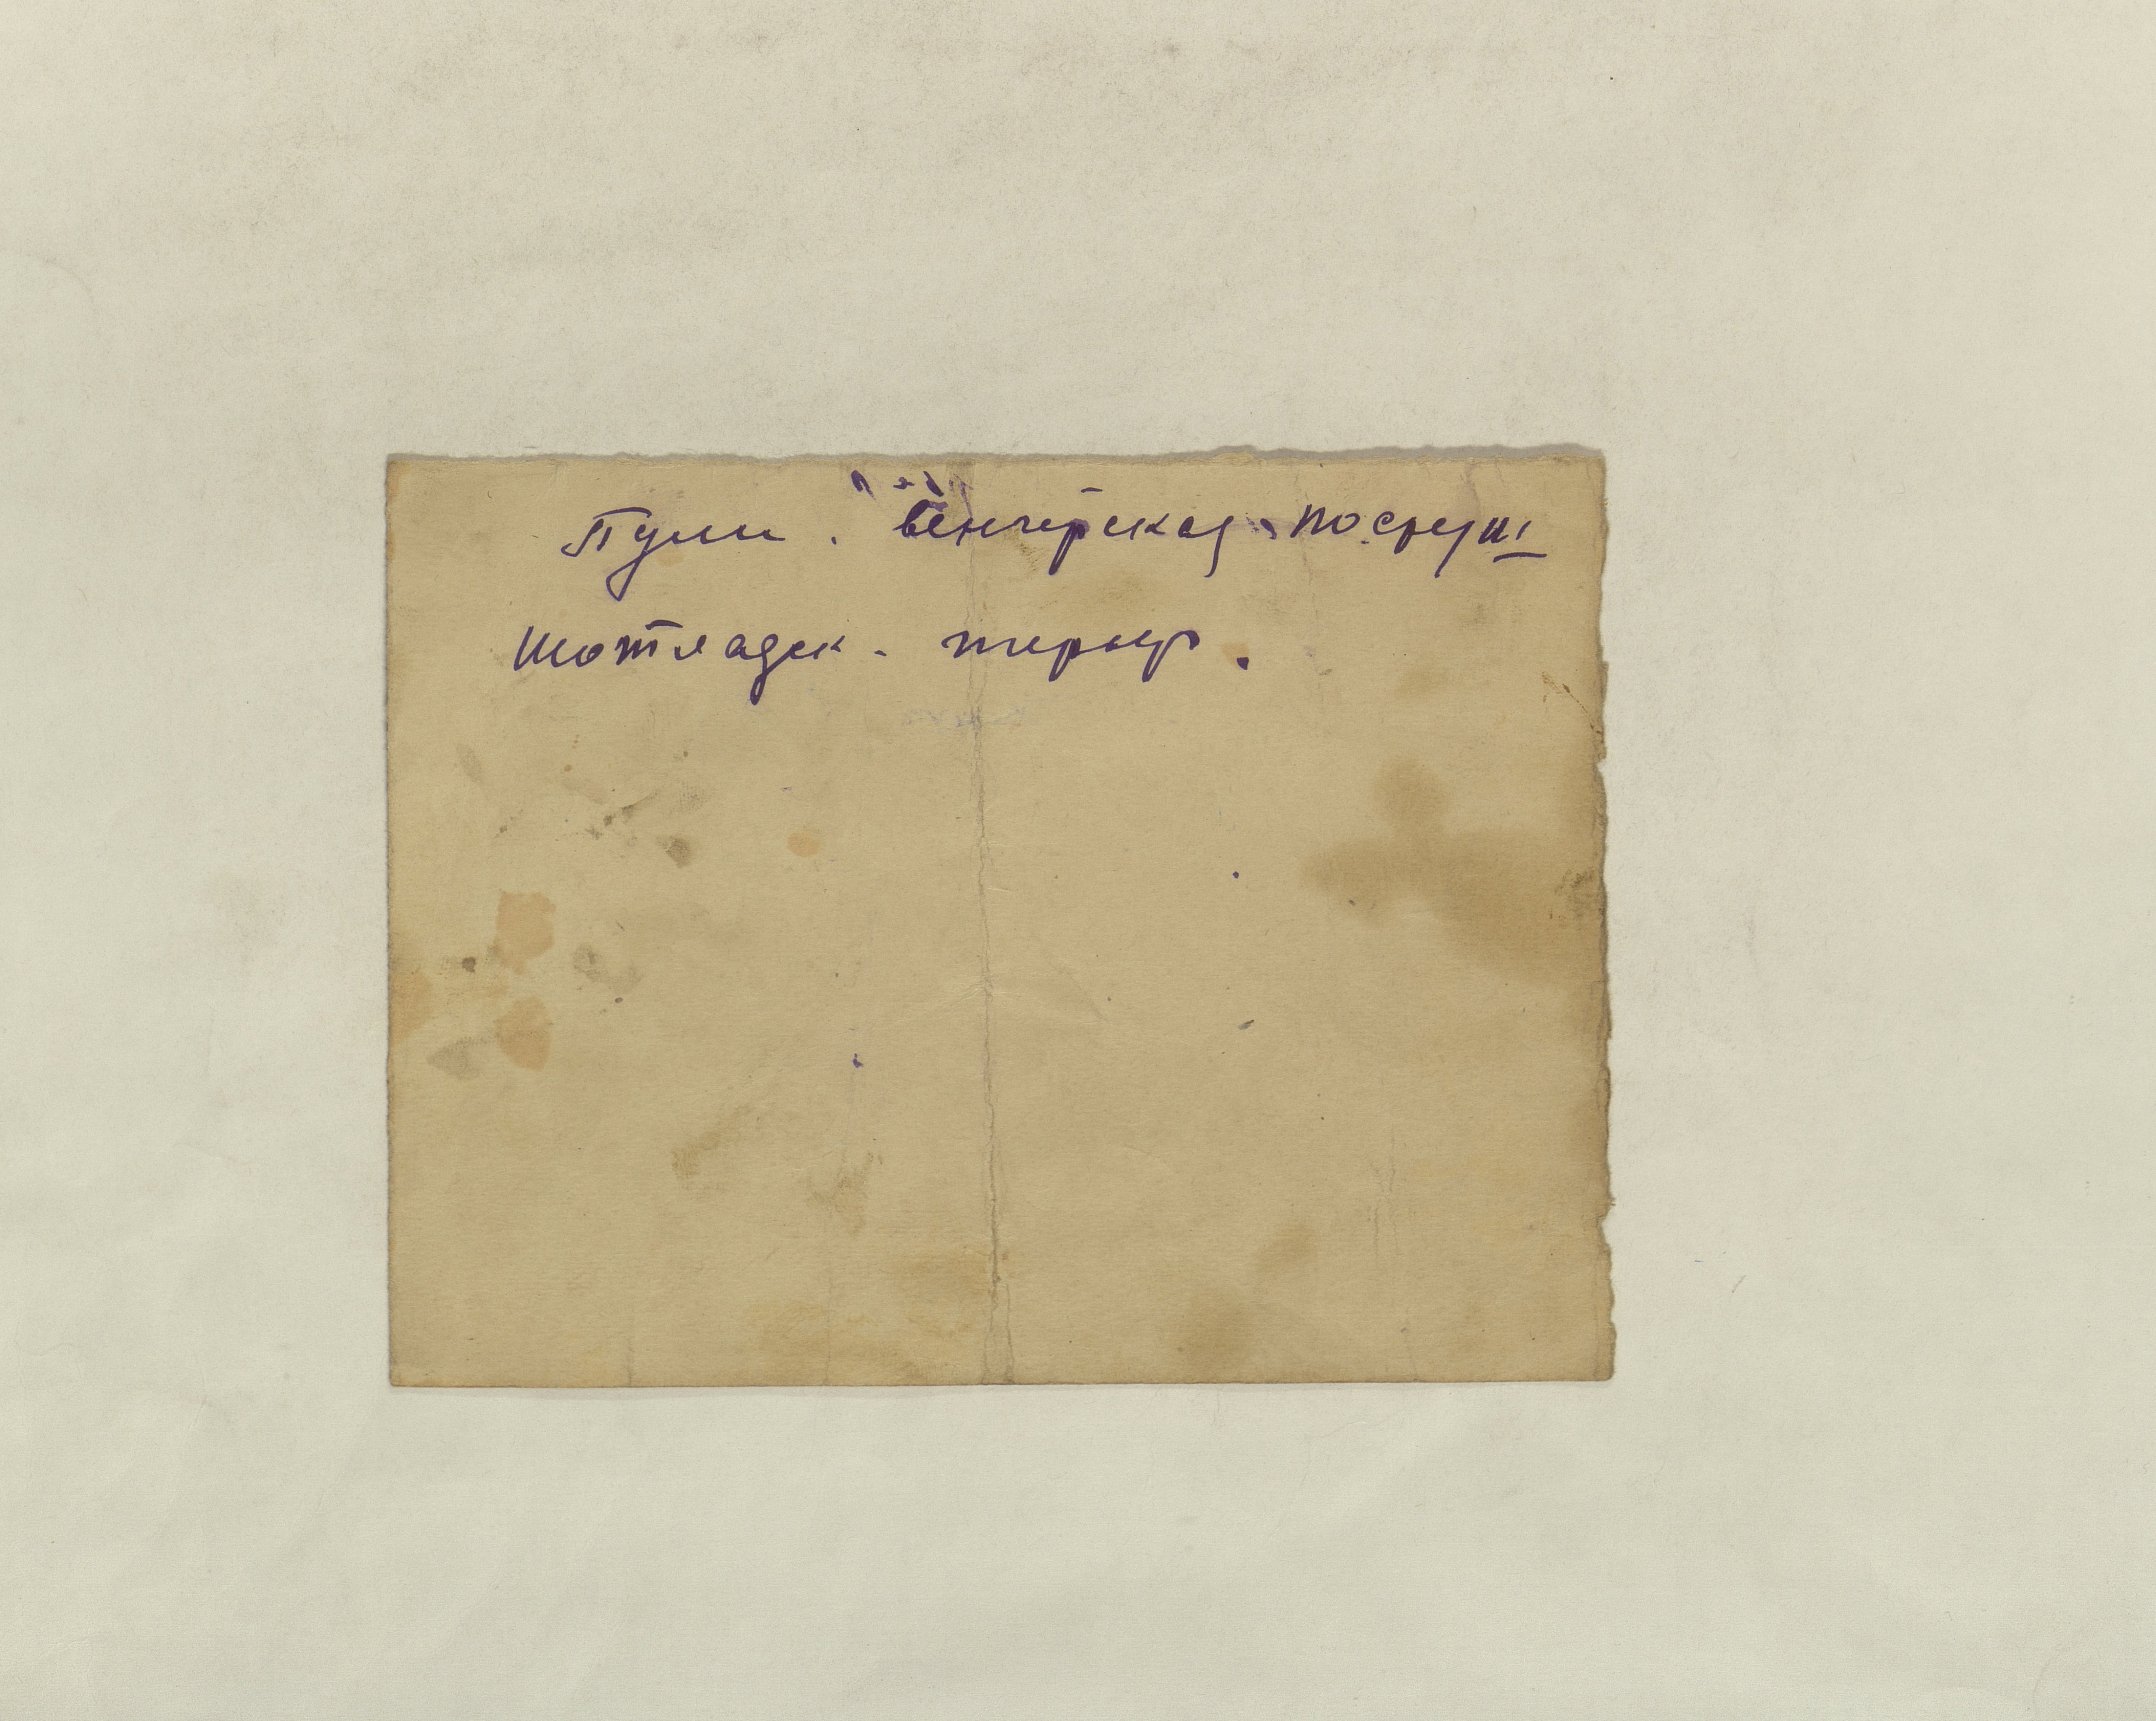 Пули. Венгерская посреди
Шотладск. терьер.